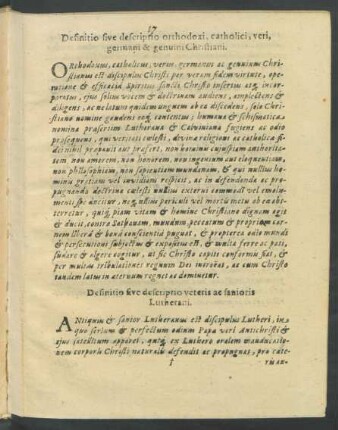 17
Definitio sive descriptio orthodoxi, catholici, veri,
germani & genuini Christiani.
ORthodoxus, catholicus, verus, germanus ac genuinus Chri-
stianus est discipulus Christi per veram fidem virtute, ope-
ratione & efficacia Spiritus sancti Christo insertus atq; incor-
poratus, ejus solius vocem & doctrinam audiens, amplectens &
diligens, ac ne latum quidem unguem ab ea discedens, solo Chri-
stiano nomine gaudens eoq; contentus; humana & schismatica
nomina præsertim Lutherana & Calviniana fugiens ac odio
prosequens, qui veritati cœlesti, divinæ religioni ac catholicæ fi-
dei nihil proponit aut præfert, non hominum cujusquam authorita-
tem, non amorem, non honorem, non ingenium aut eloquentiam,
non philosophiam, non sapientiam mundanam, & qui nullius ho-
minis gratiam vel invidiam respicit, ac in defendenda ac pro-
pugnanda doctrina cœlesti nullius externi commodi vel emolu-
menti spe ducitur, neq; ullius periculi vel mortis metu ab ea abs-
terretur, quiq; piam vitam & homine Christiano dignam agit
& ducit, contra Sathanam, mundum, peccatum & propriam car-
nem
& bona conscientia pugnat, & propterea odio mundi
& persecutioni subjectus & expositus est, & multa ferre ac pati,
sudare & algere cogitur, ut sic Christo capiti conformis fiat, &
per multas tribulationes regnum Dei introeat, ac cum Christo
tandem latus in æternum regnet ac dominetur.
Definitio sive descriptio veteris ac sanioris
Lutherani.
ANtiquus & sanior Lutheranus est discipulus Lutheri, in-
quo serium & perfectum odium Papæ veri Antichristi &
ejus
apparet, quiq; ex Luthero oralem manducatio-
nem corporis Christi naturalis defendit ac propugnat, pro cæte-